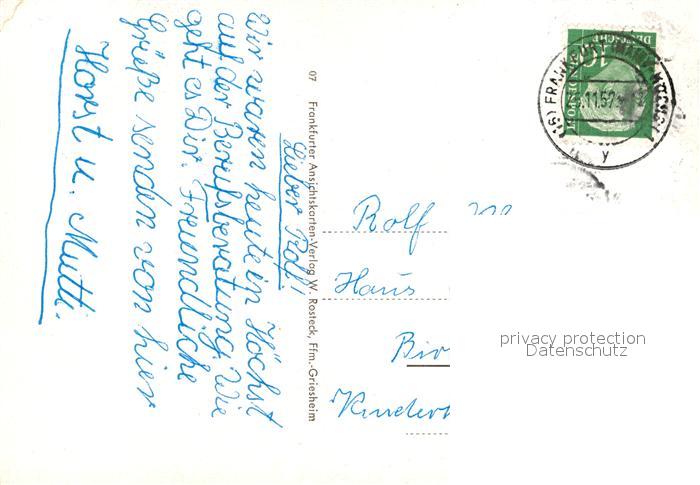 Lieber Rolf!
Wir waren heute in Höchst
auf der Berufsberatung. Wie
geht es Dir. Freundliche
Grüße senden von hier
Horst u. Mutti.
07 Frankfurter Ansichtskarten-Verlag W. Rosteck, Ffm.-Griesheim
10
DEUTSCHE
BUNDESPOST
(16) FRANKFURT
.11.57
y
Rolf
Haus
Bir
Kinder
privacy protection
Datenschutz